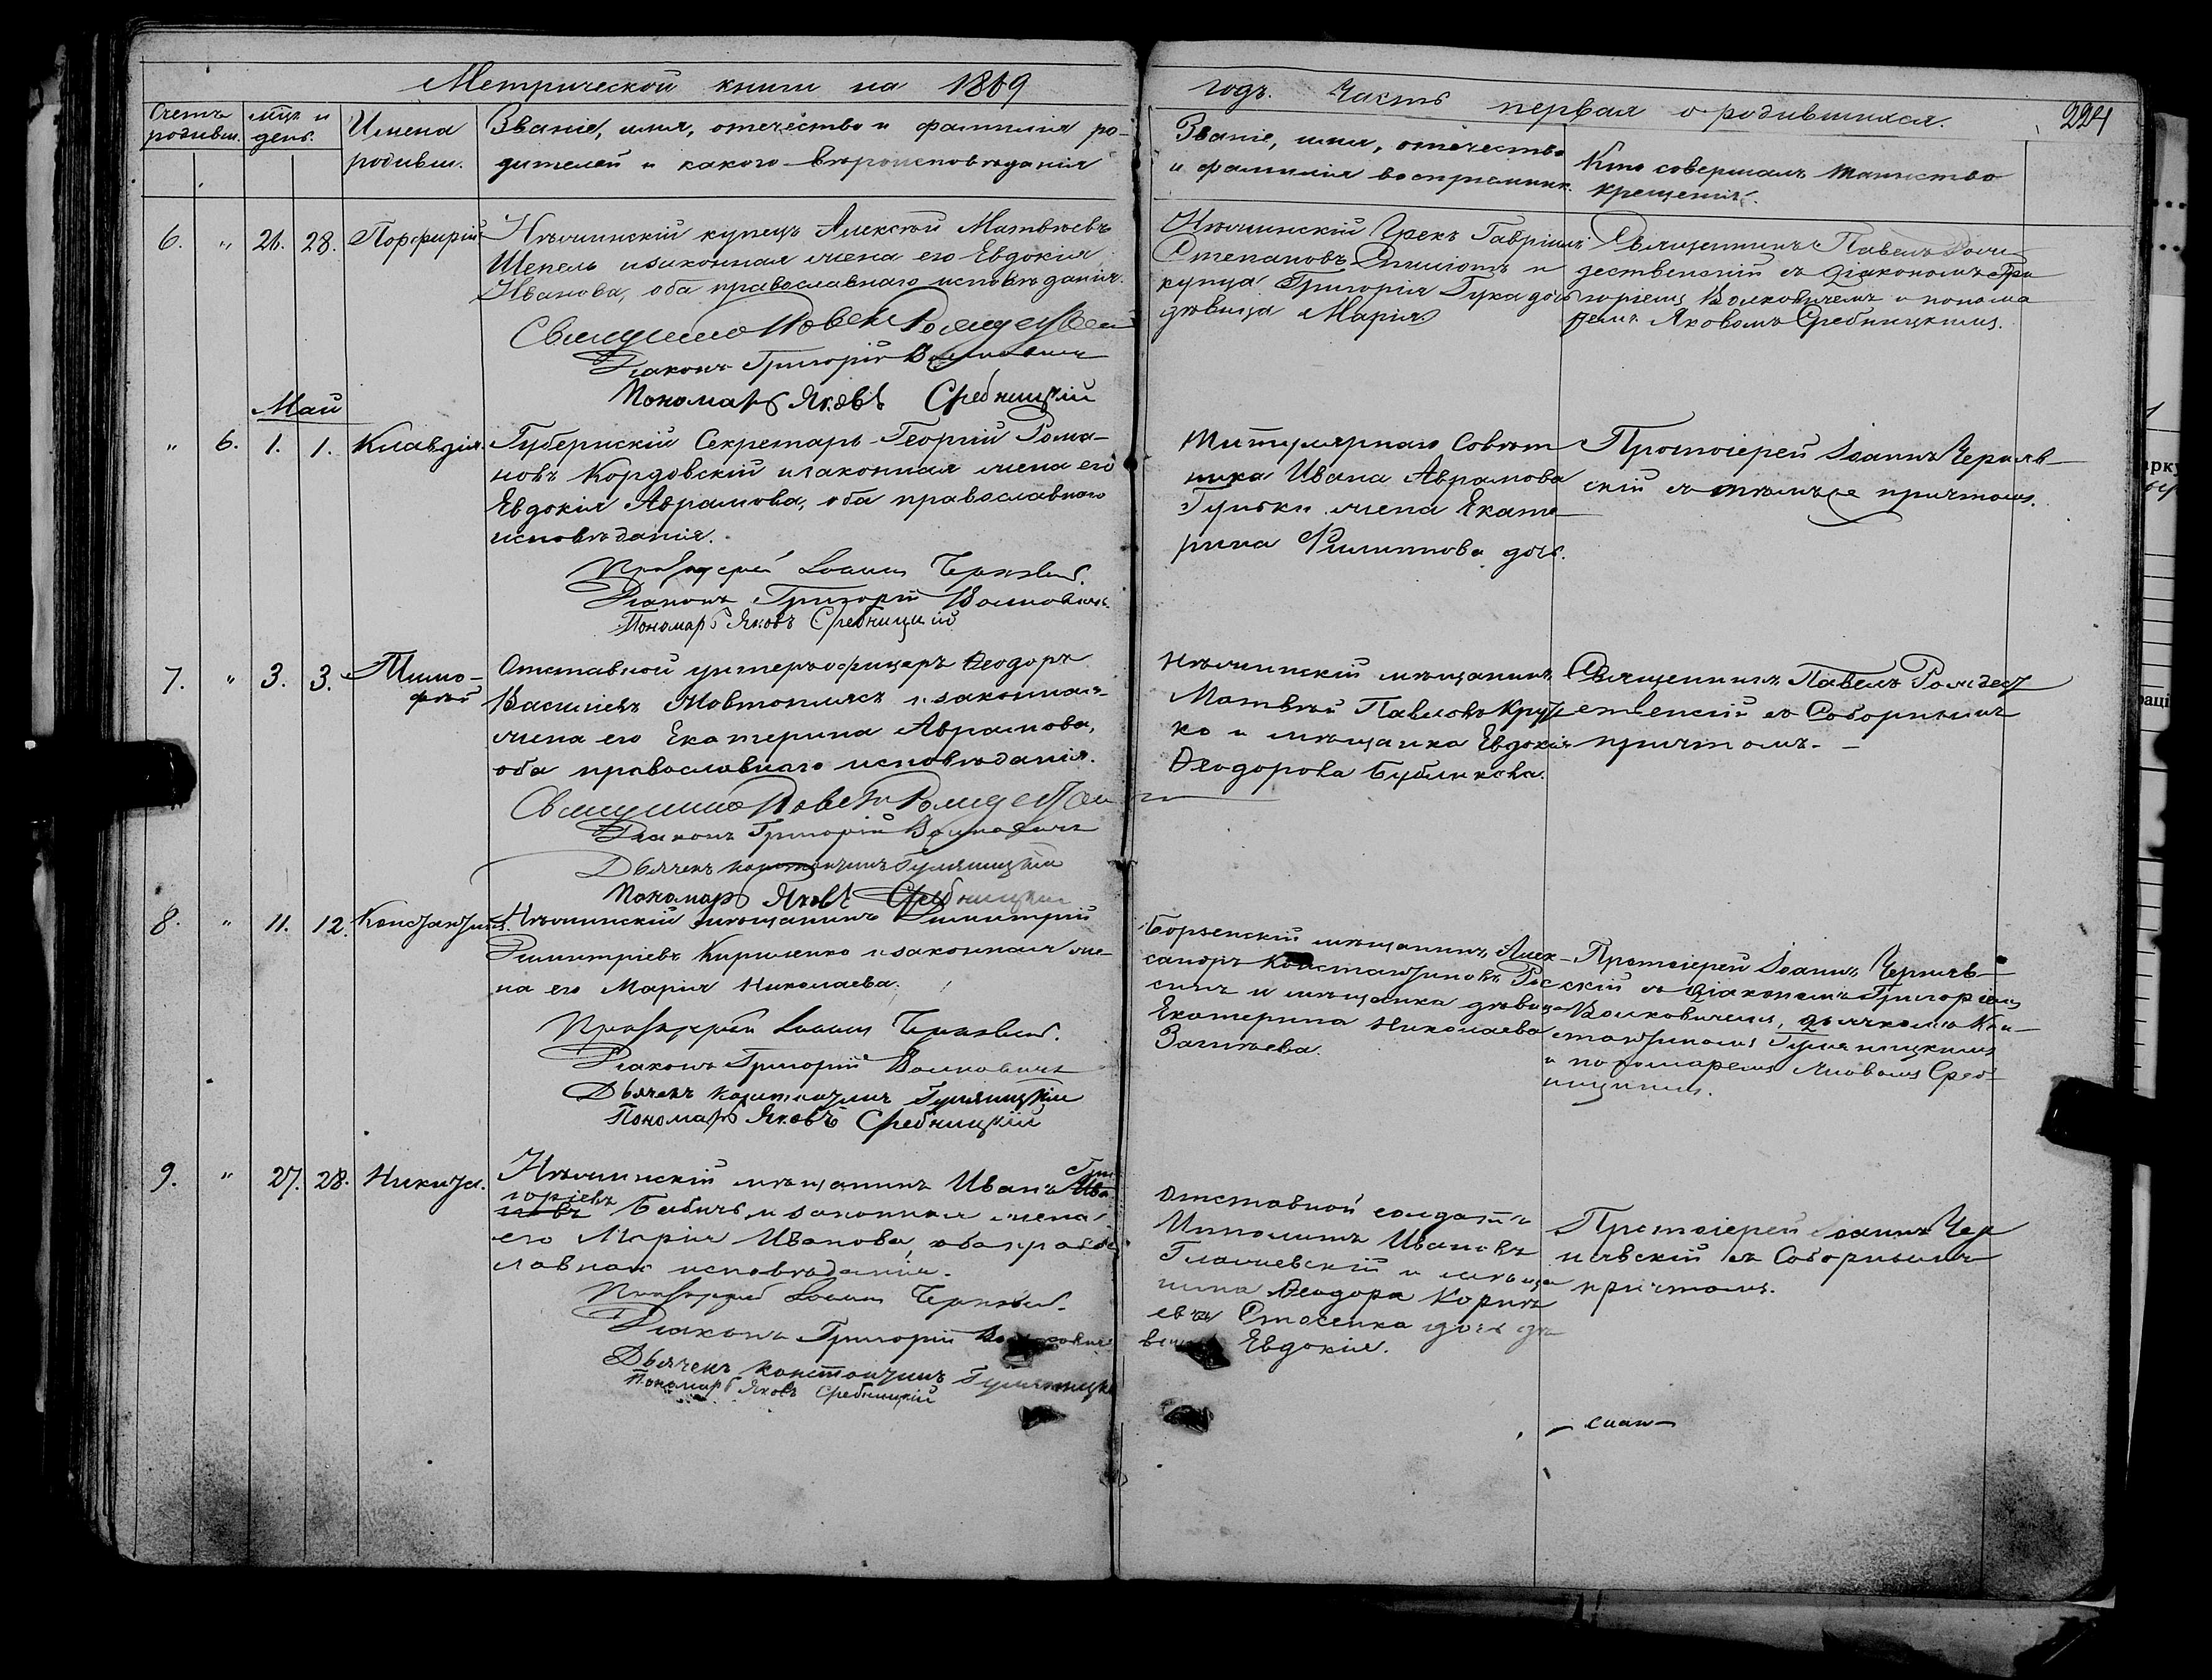 Метрической книги на 1869
годъ. Часть первая о родившихся.
224
Счетъ родивш.
мѣц. и день.
Имена родивш.
Званіе, имя, отечество и фамилія ро-
дителей и какого вѣроисповѣданія
Званіе, имя, отечество
и фамилія воспріемник.
Кто совершалъ таинство
крещенія.
6. " 26. 28. Порфирій
Нѣжинскій купецъ Алексѣй Матвѣевъ
Шепель и законная жена его Евдокія
Иванова, оба православнаго исповѣданія.
Діаконъ Григорій Волковичъ
Пономарь Яковъ Сребницкій
Нѣжинскій Грекъ Гавріилъ
Степановъ и
купца Григорія дочь
дѣвица Марія
Священникъ Павелъ Рож-
дественскій съ Діакономъ Гри
горіемъ Волковичемъ и понома
ремъ Яковомъ Сребницкимъ.
Май
" 6. 1. 1. Клавдія.
Губернскій Секретарь Георгій Рома-
новъ Кордовскій и законная жена его
Евдокія Аврамова, оба православнаго
исповѣданія.
Протоіерей Іоаннъ
Діаконъ Григорій Волковичъ
Пономарь Яковъ Сребницкій
Титулярнаго Совѣт
ника Ивана Аврамова
жена Екате-
рина Филиппова дочь.
Протоіерей Іоаннъ Черняв-
скій съ тѣмъ же причтомъ.
7. " 3. 3. Тимо-
фей
Отставной унтеръ-офицеръ Ѳеодоръ
Васильевъ Жовтоплясъ и законная
жена его Екатерина Аврамова,
оба православнаго исповѣданія.
Діаконъ Григорій Волковичъ
Дьячекъ Константинъ
Пономарь Яковъ Сребницкій
Нѣжинскій мѣщанинъ
Матвѣй Павловъ
и мѣщанка Евдокія
Ѳеодорова Бубликова.
Священникъ Павелъ Рождест
венскій съ Соборнымъ
причтомъ.
8. " 11. 12. Константинъ.
Нѣжинскій мѣщанинъ Димитрій
Димитріевъ Кириленко и законная же-
на его Марія Николаева.
Протоіерей Іоаннъ
Діаконъ Григорій Волковичъ
Дьячекъ Константинъ
Пономарь Яковъ Сребницкій
Борзенскій мѣщанинъ Алек-
сандръ Константиновъ
и мѣщанка дѣвица
Екатерина Николаева
Протоіерей Іоаннъ Черняв-
скій съ Діакономъ Григоріемъ
Волковичемъ, дьячкомъ Кон-
стантиномъ
и пономаремъ Яковомъ Среб-
ницкимъ.
9. " 27. 28. Никита.
Нѣжинскій мѣщанинъ Иванъ Гри
горіевъ Бабичъ и законная жена
его Марія Иванова, оба правос
лавнаго исповѣданія.
Протоіерей Іоаннъ
Діаконъ Григорій
Дьячекъ Константинъ
Пономарь Яковъ Сребницкій
Отставной солдатъ
Ипполитъ Ивановъ
и мѣща
нина Ѳеодора
дочь
Евдокія.
Протоіерей Іоаннъ Чер
нявскій съ Соборнымъ
причтомъ.